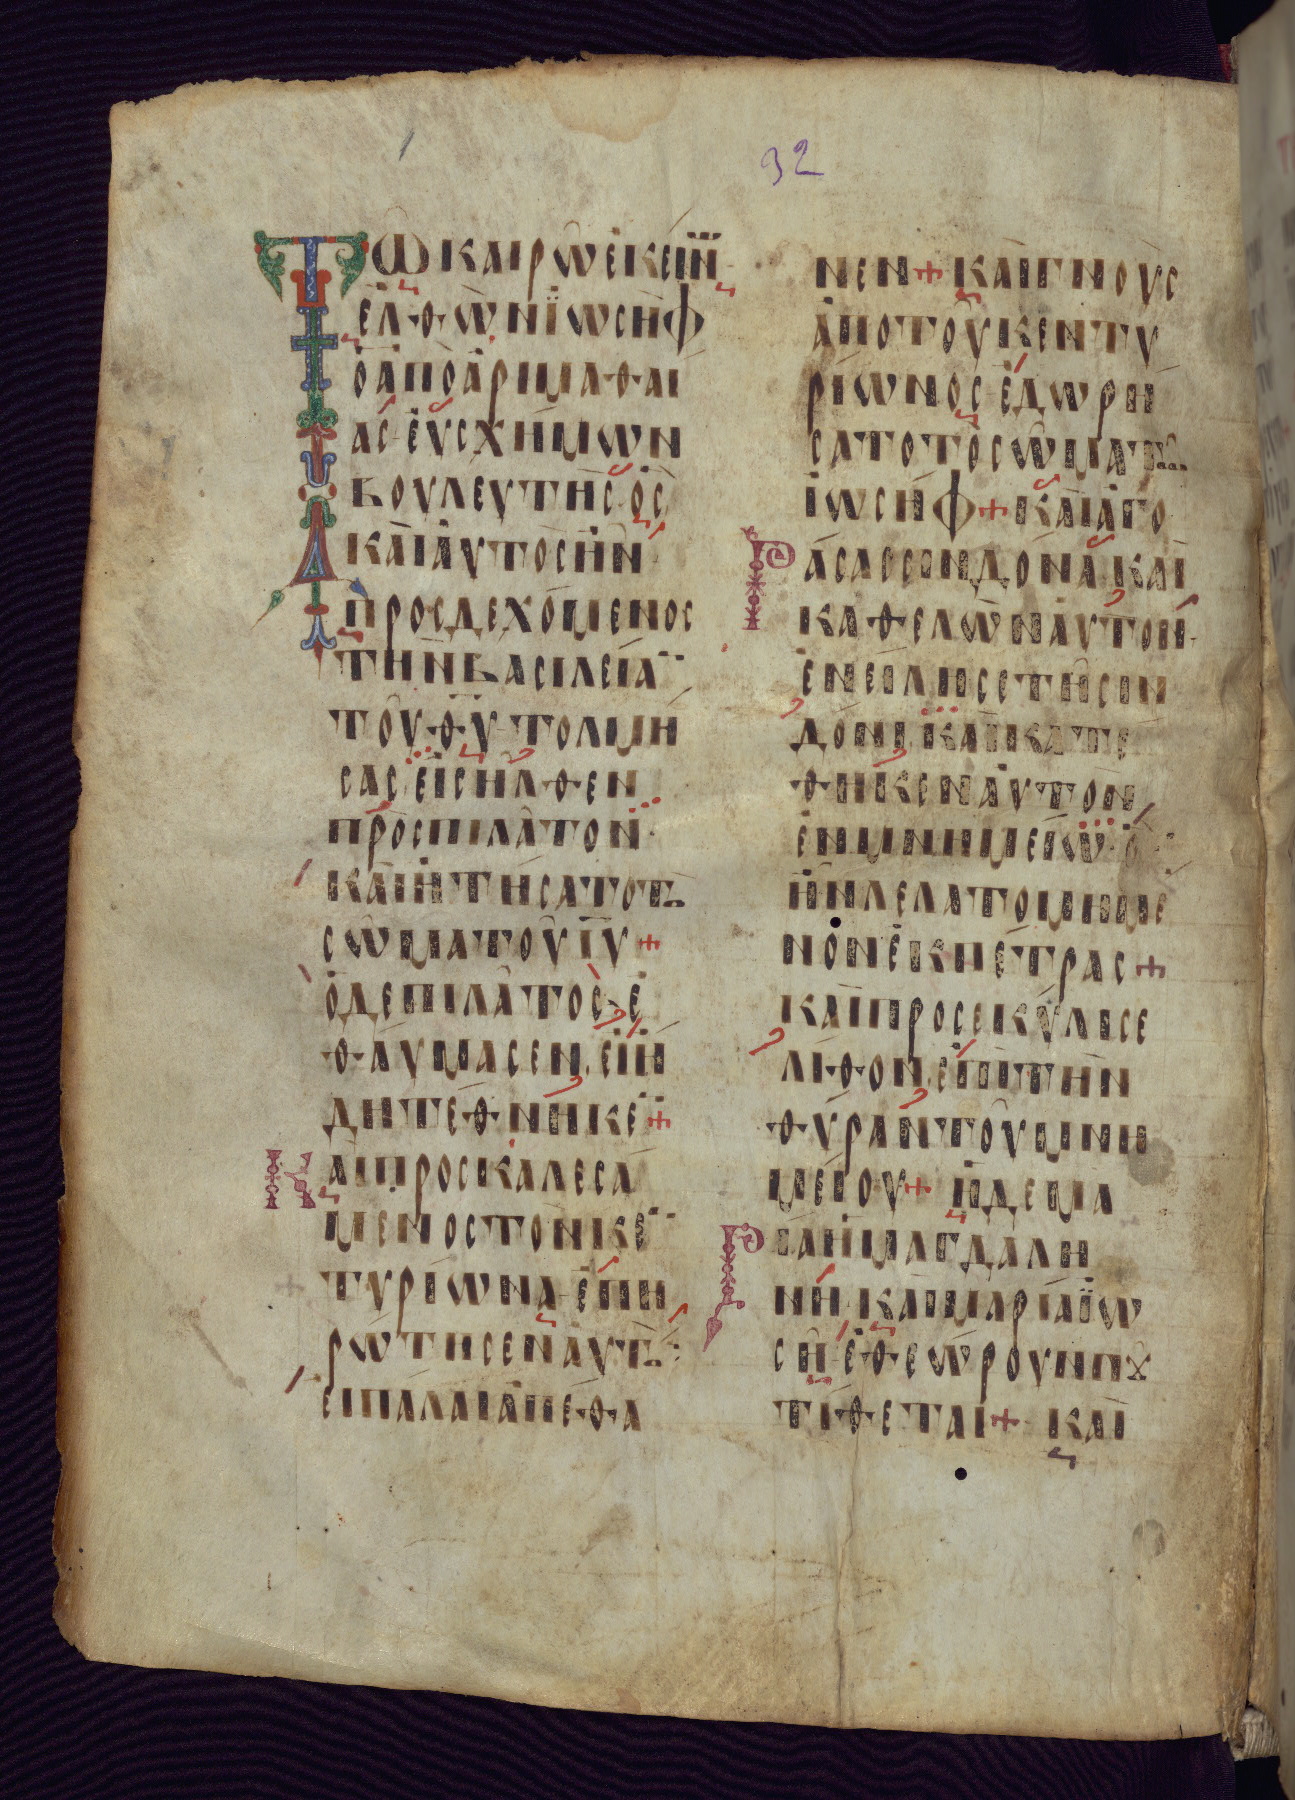 92
Τῶ καιρῶ ἐκείν
ἐλθὼν ἰωσὴφ
ὁ ἀπὸ ἀριμαθαί
ας· ἐυσχήμων
βουλευτὴς· ὃς
καὶ ἀυτὸς ἦν
προσδεχόμενος
τὴν βασιλεία
τοῦ θυ· τολμή
σας· ἐισῆλθεν
πρὸς πιλᾶτον·
καὶ ἠτήσατο τὸ
σῶμα τοῦ ιυ +
ὁ δὲ πιλᾶτος· ἐ
θάυμασεν, ἐι ἤ
δη τέθνηκε +
Καὶ προσκαλεσά
μενος τὸν κε
τυρίωνα· ἐπη
ρώτησεν ἀυτὸ
εἰ πάλαι ἀπέθα
νεν + καὶ γνοὺς
ἀπὸ τοῦ κεντυ
ρίωνος· ἐδωρή
σατο τὸ σῶμα τῶ
ἰωσὴφ + καὶ ἀγο
ράσας σινδόνα· καὶ
καθελὼν ἀυτὸν·
ἐνείλησε τῆ σιν
δόνι· καὶ κατέ
θηκεν ἀυτὸν
ἐν μνημείω· ὃ
ἦν λελατομημέ
νον ἐκ πέτρας +
καὶ προσεκύλισε
λίθον, ἐπὶ τὴν
θύραν τοῦ μνη
μείου + ἡ δὲ μα
ρία ἡ μαγδαλη
νὴ, καὶ μαρία ἰω
σῆ· ἐθεώρουν π
τίθεται + καὶ